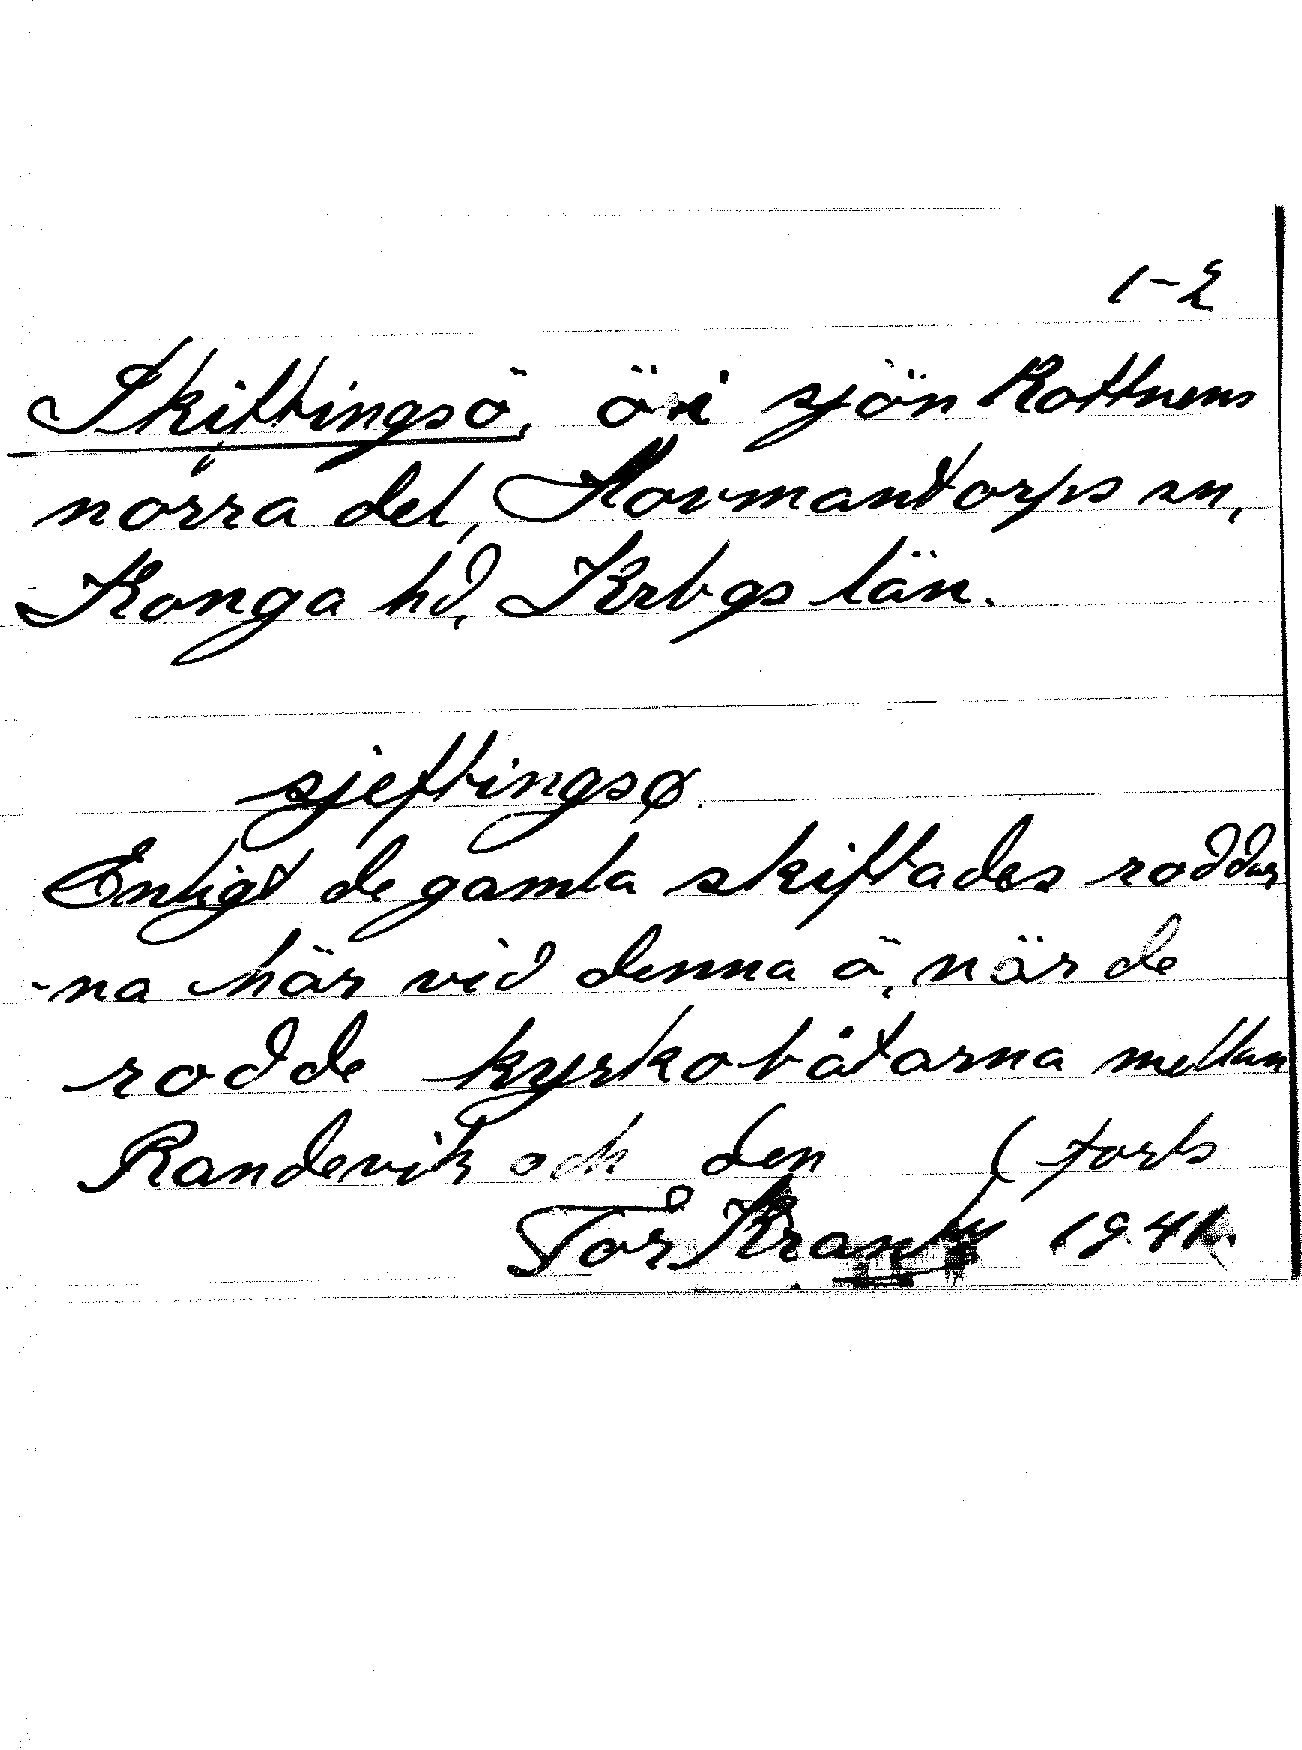 1-2
Skiftingsö, ö i sjön Rottnens
norra del, Hovmantorps sn,
Konga hd, Krbgs län.
sjeftingsø.
Enligt de gamla skiftades roddar
-na här vid denna ö, när de
rodde kyrkobåtarna mellan
Randevik och den (forts
Tor Krantz 1941.